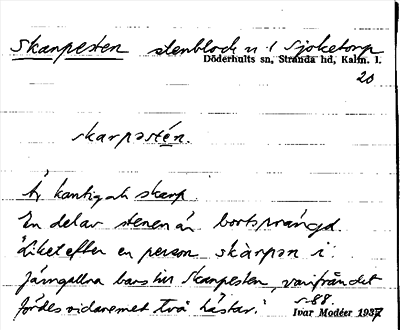 Skarpesten stenblock n. 1 Sjöketorp
Döderhults sn, Stranda hd, Kalm. l.
20
skarpəstén.
Är kantig och skarp.
En del av stenen är bortsprängd.
"Liket efter en person skàrpən i
Järngallna bars till Skarpesten, varifrån det
fördes vidare met två hästar."
s. 88.
Ivar Modéer 1937